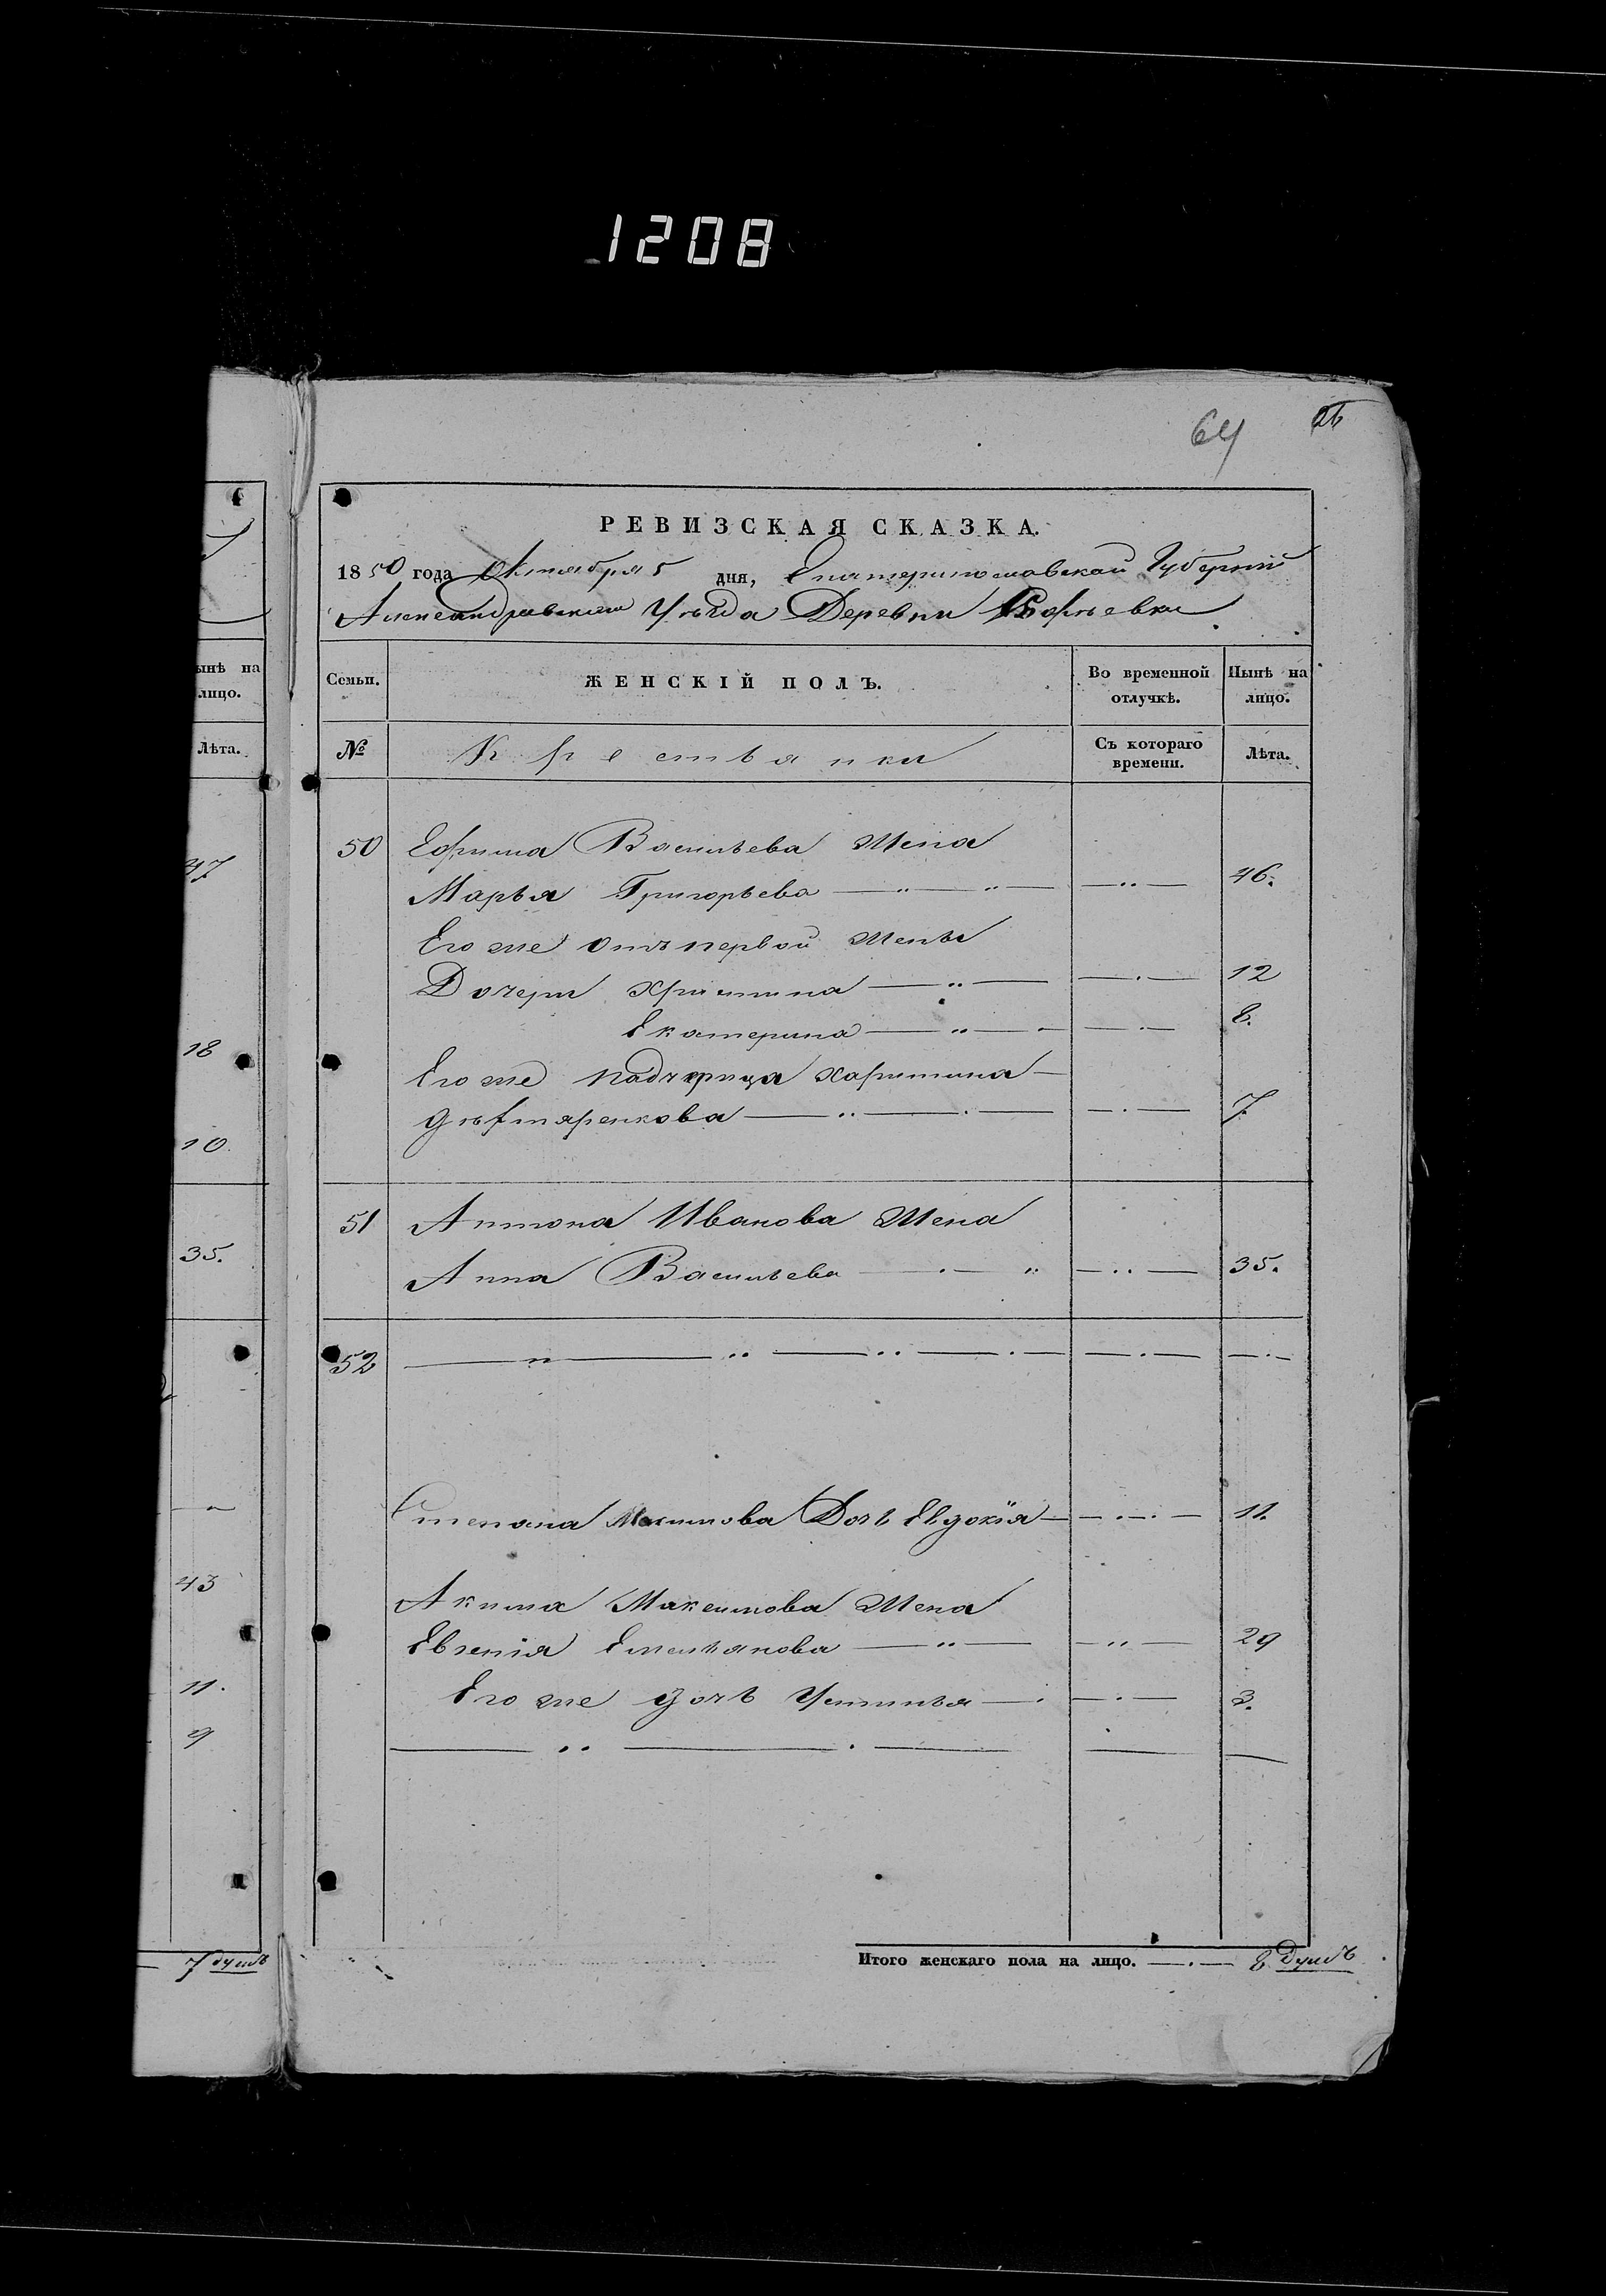 1208
64 26
РЕВИЗСКАЯ СКАЗКА.
1850 года Октября 5 дня, Екатеринославской Губернiи
Александравскаго Уѣзда Деревни Софiевки
ынѣ на
лицо.
Семьи.
ЖЕНСКIЙ ПОЛЪ.
Во временной
отлучкѣ.
Нынѣ на
лицо.
Лѣта.
№
Крестьянки
Съ котораго
времени.
Лѣта.
50 Ефима Васильева Жена
47
Марья Григорьева 46.
Его же отъ первой жены
Дочери Христина 12
Екатерина 8.
18
Его же падчерица Харитина
7
10.
51 Антона Иванова Жена
35.
Анна Васильева 35.
52
Степана Дочь Евдокiя 11.
43
Акима Максимова Жена
Евгенiя Емельянова 29
11.
Его же дочь Устинья 3.
9
7 душъ
Итого женскаго пола на лицо. 8 Душъ